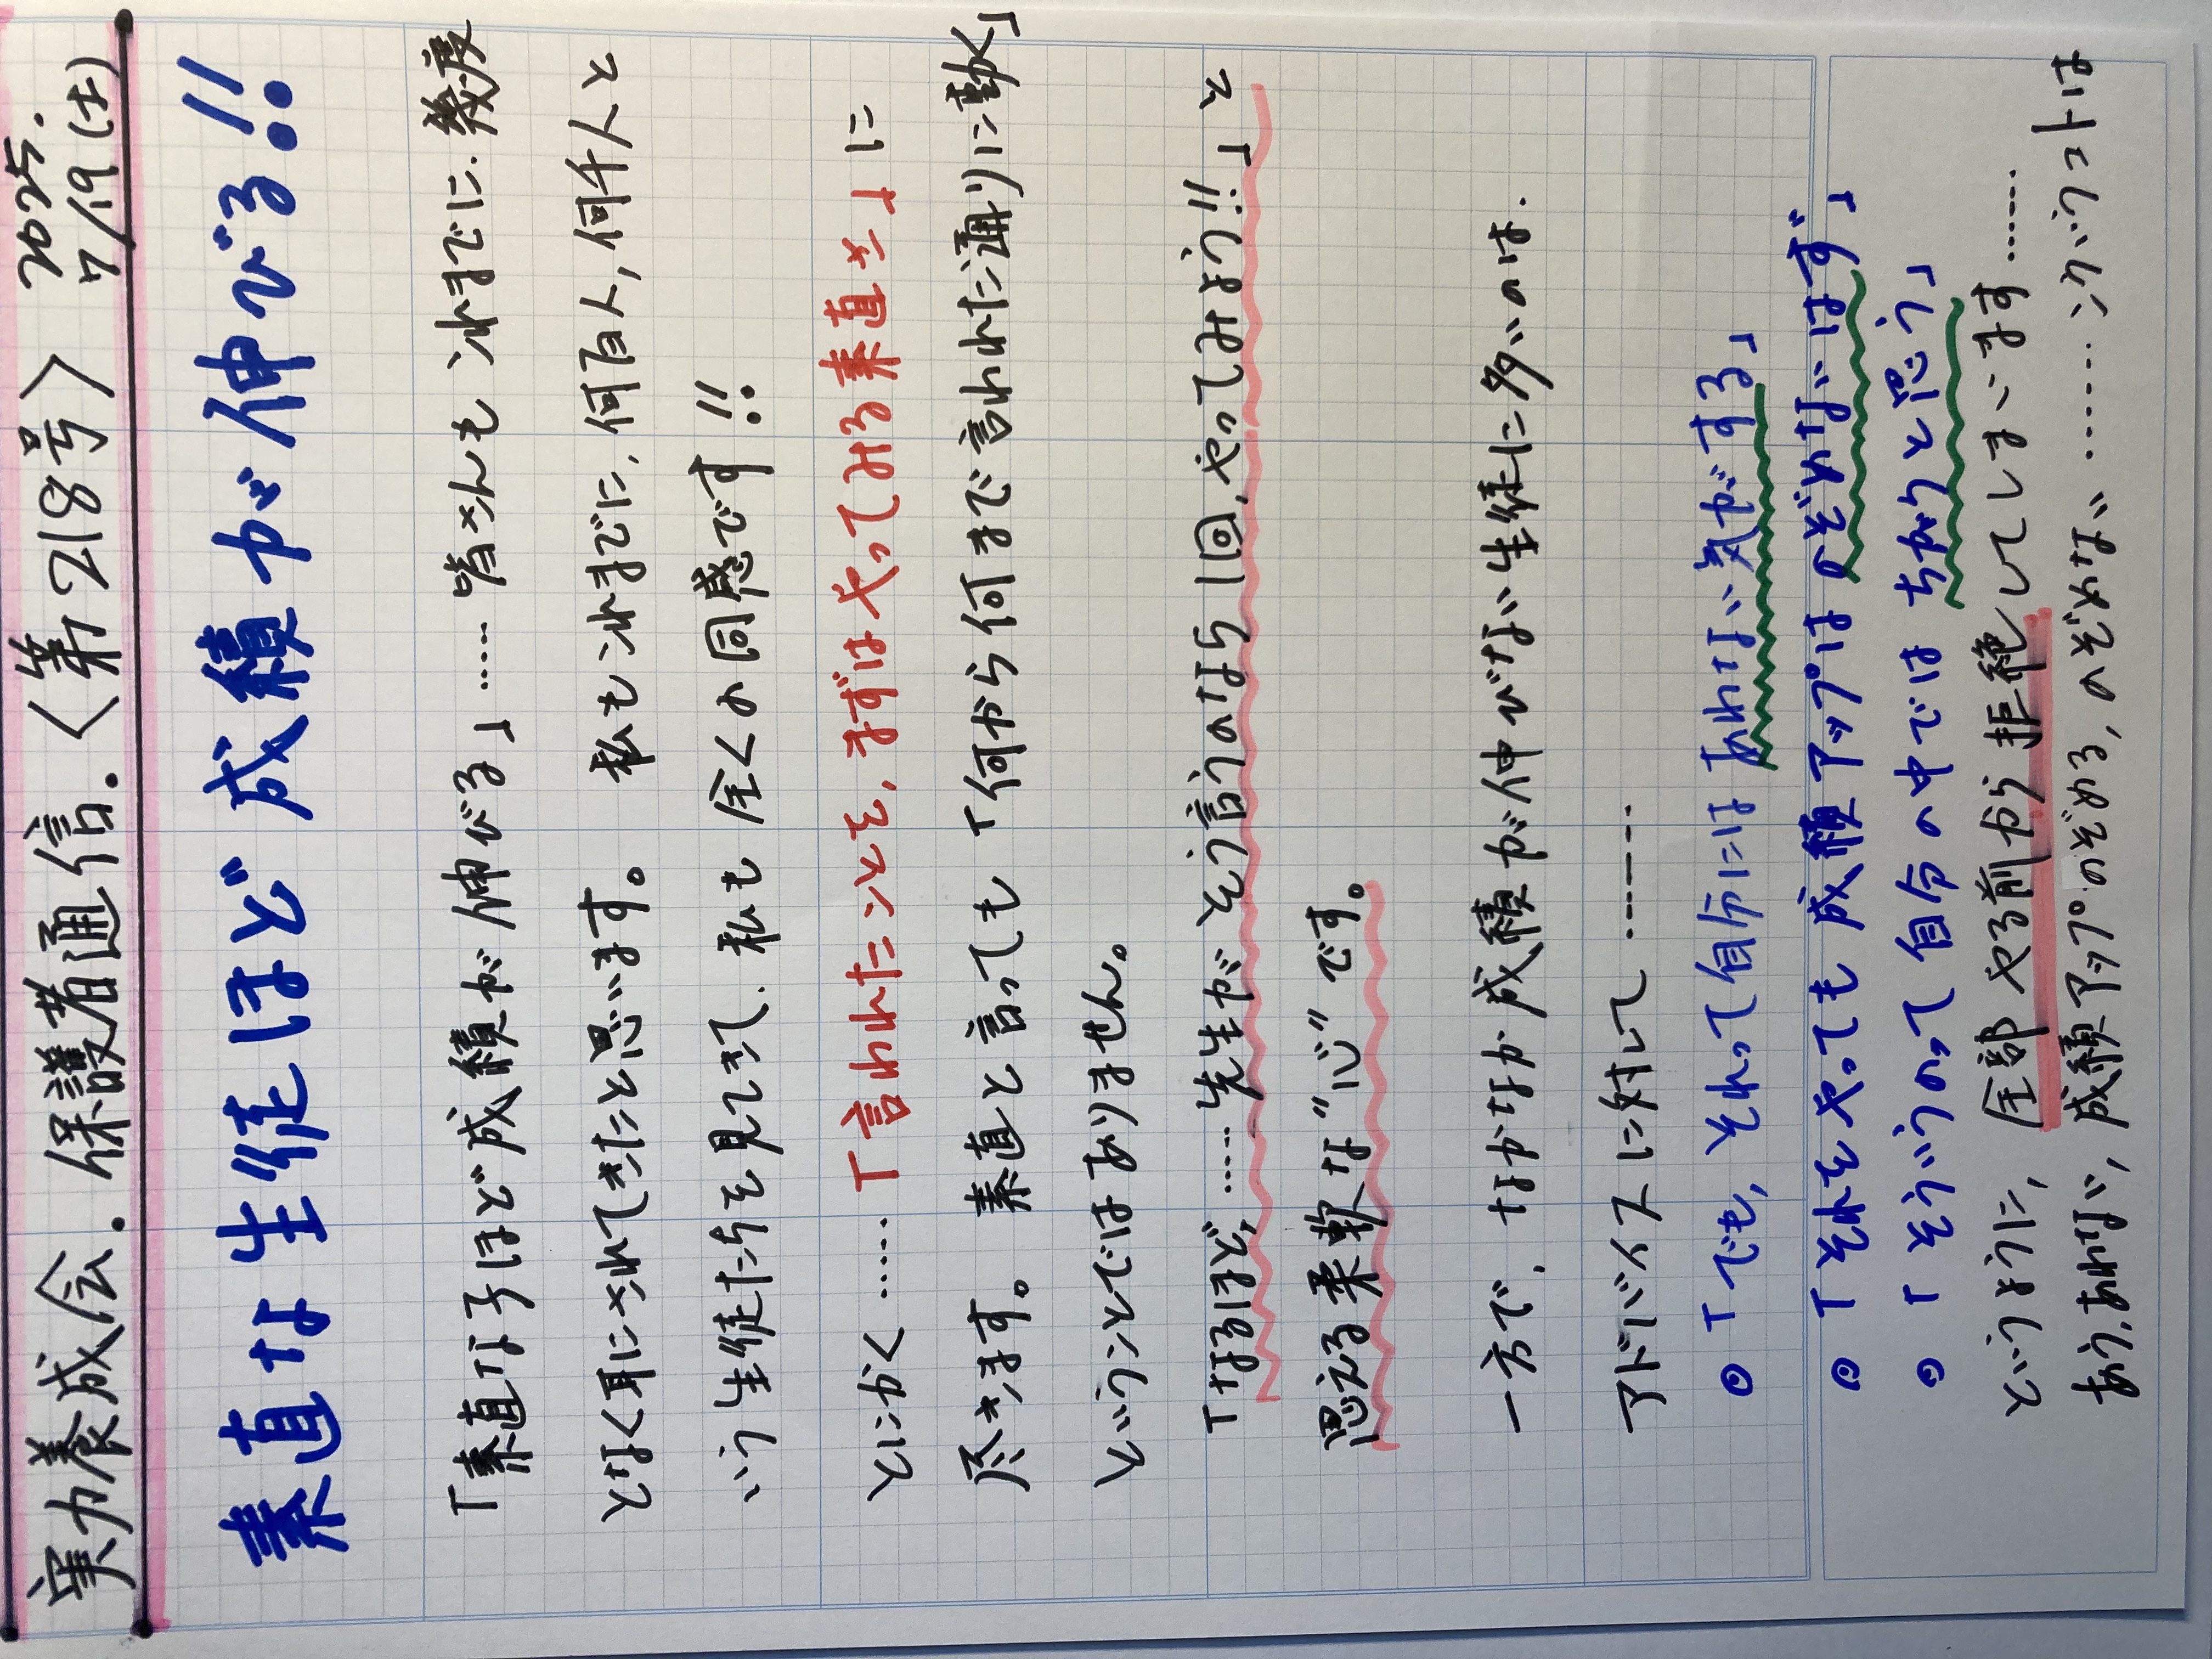 実力養成会.保護者通信.〈第218号〉 2025. 7/19(土)
素直な生徒ほど成績が伸びる!!
「素直な子ほど成績が伸びる」……皆さんもこれまでに、幾度
となく耳にされてきたと思います。私もこれまでに、何百人,何千人と
いう生徒たちを見てきて、私も全くの同感です!!
とにかく……「言われたことを,まずはやってみる素直さ」に
尽きます。素直と言っても「何から何まで言われた通りに動く」
ということではありません。
「なるほど、……先生がそう言うのなら1回,やってみよう!!」と
思える柔軟な"心"です。
一方で、なかなか成績が伸びない生徒に多いのは、
アドバイスに対して……
◎「でも,それって自分には あわない気がする」
◎「それをやっても成績アップは のぞめないはず」
◎「そういうのって自分の中では ちがうと思う」
というように,全部やる前から拒絶してしまいます……
あう,あわない,成績アップ°のぞめる,のぞめない……こういうコトは